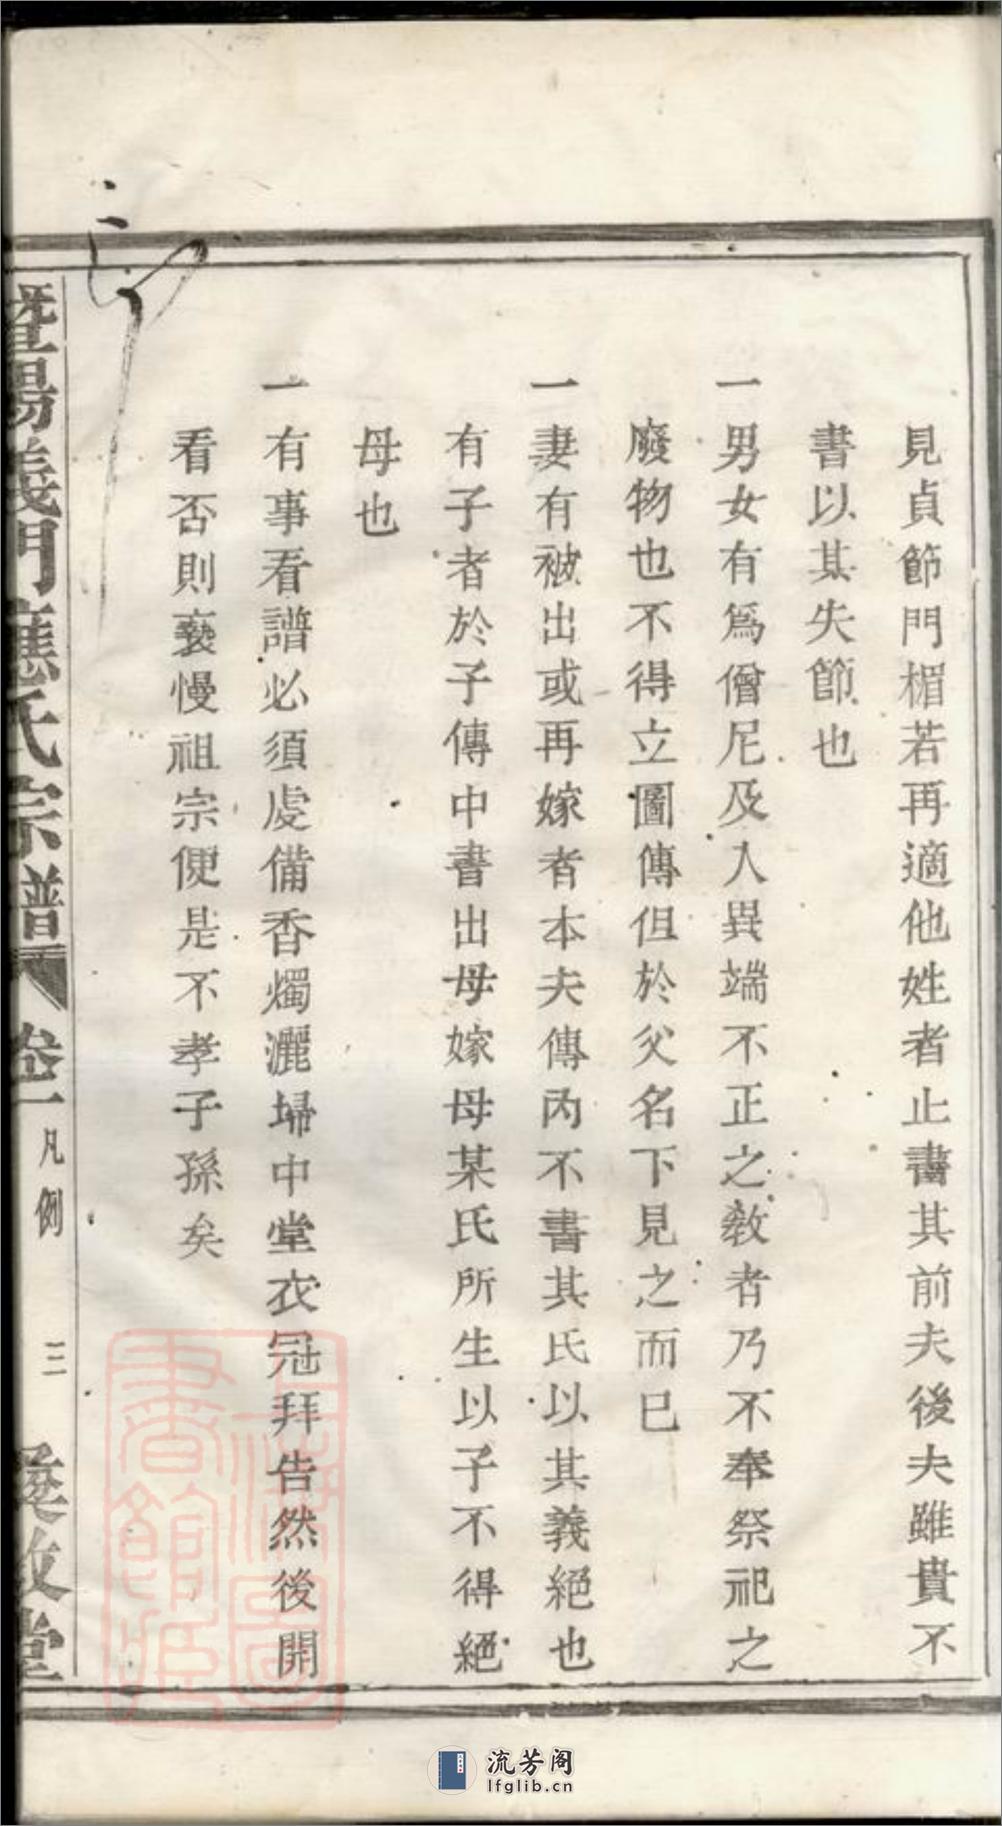 見貞節門楣若再適他姓者止書其前夫後夫雖貴不
書以其失節也
一男女有爲僧尼及入異端不正之敎者乃不奉祭祀之
廢物也不得立圖傳但於父名下見之而已
一妻有被出或再嫁者本夫傳內不書其氏以其義絕也
有子者於子傳中書出母嫁母某氏所生以子不得絕
母也
一有事看譜必須虔備香燭灑埽中堂衣冠拜告然後開
看否則褻慢祖宗便是不孝子孫矣
暨陽義門應氏宗譜 卷一 凡例 三 堂
上海圖書館藏
流芳阁
lfglib.cn